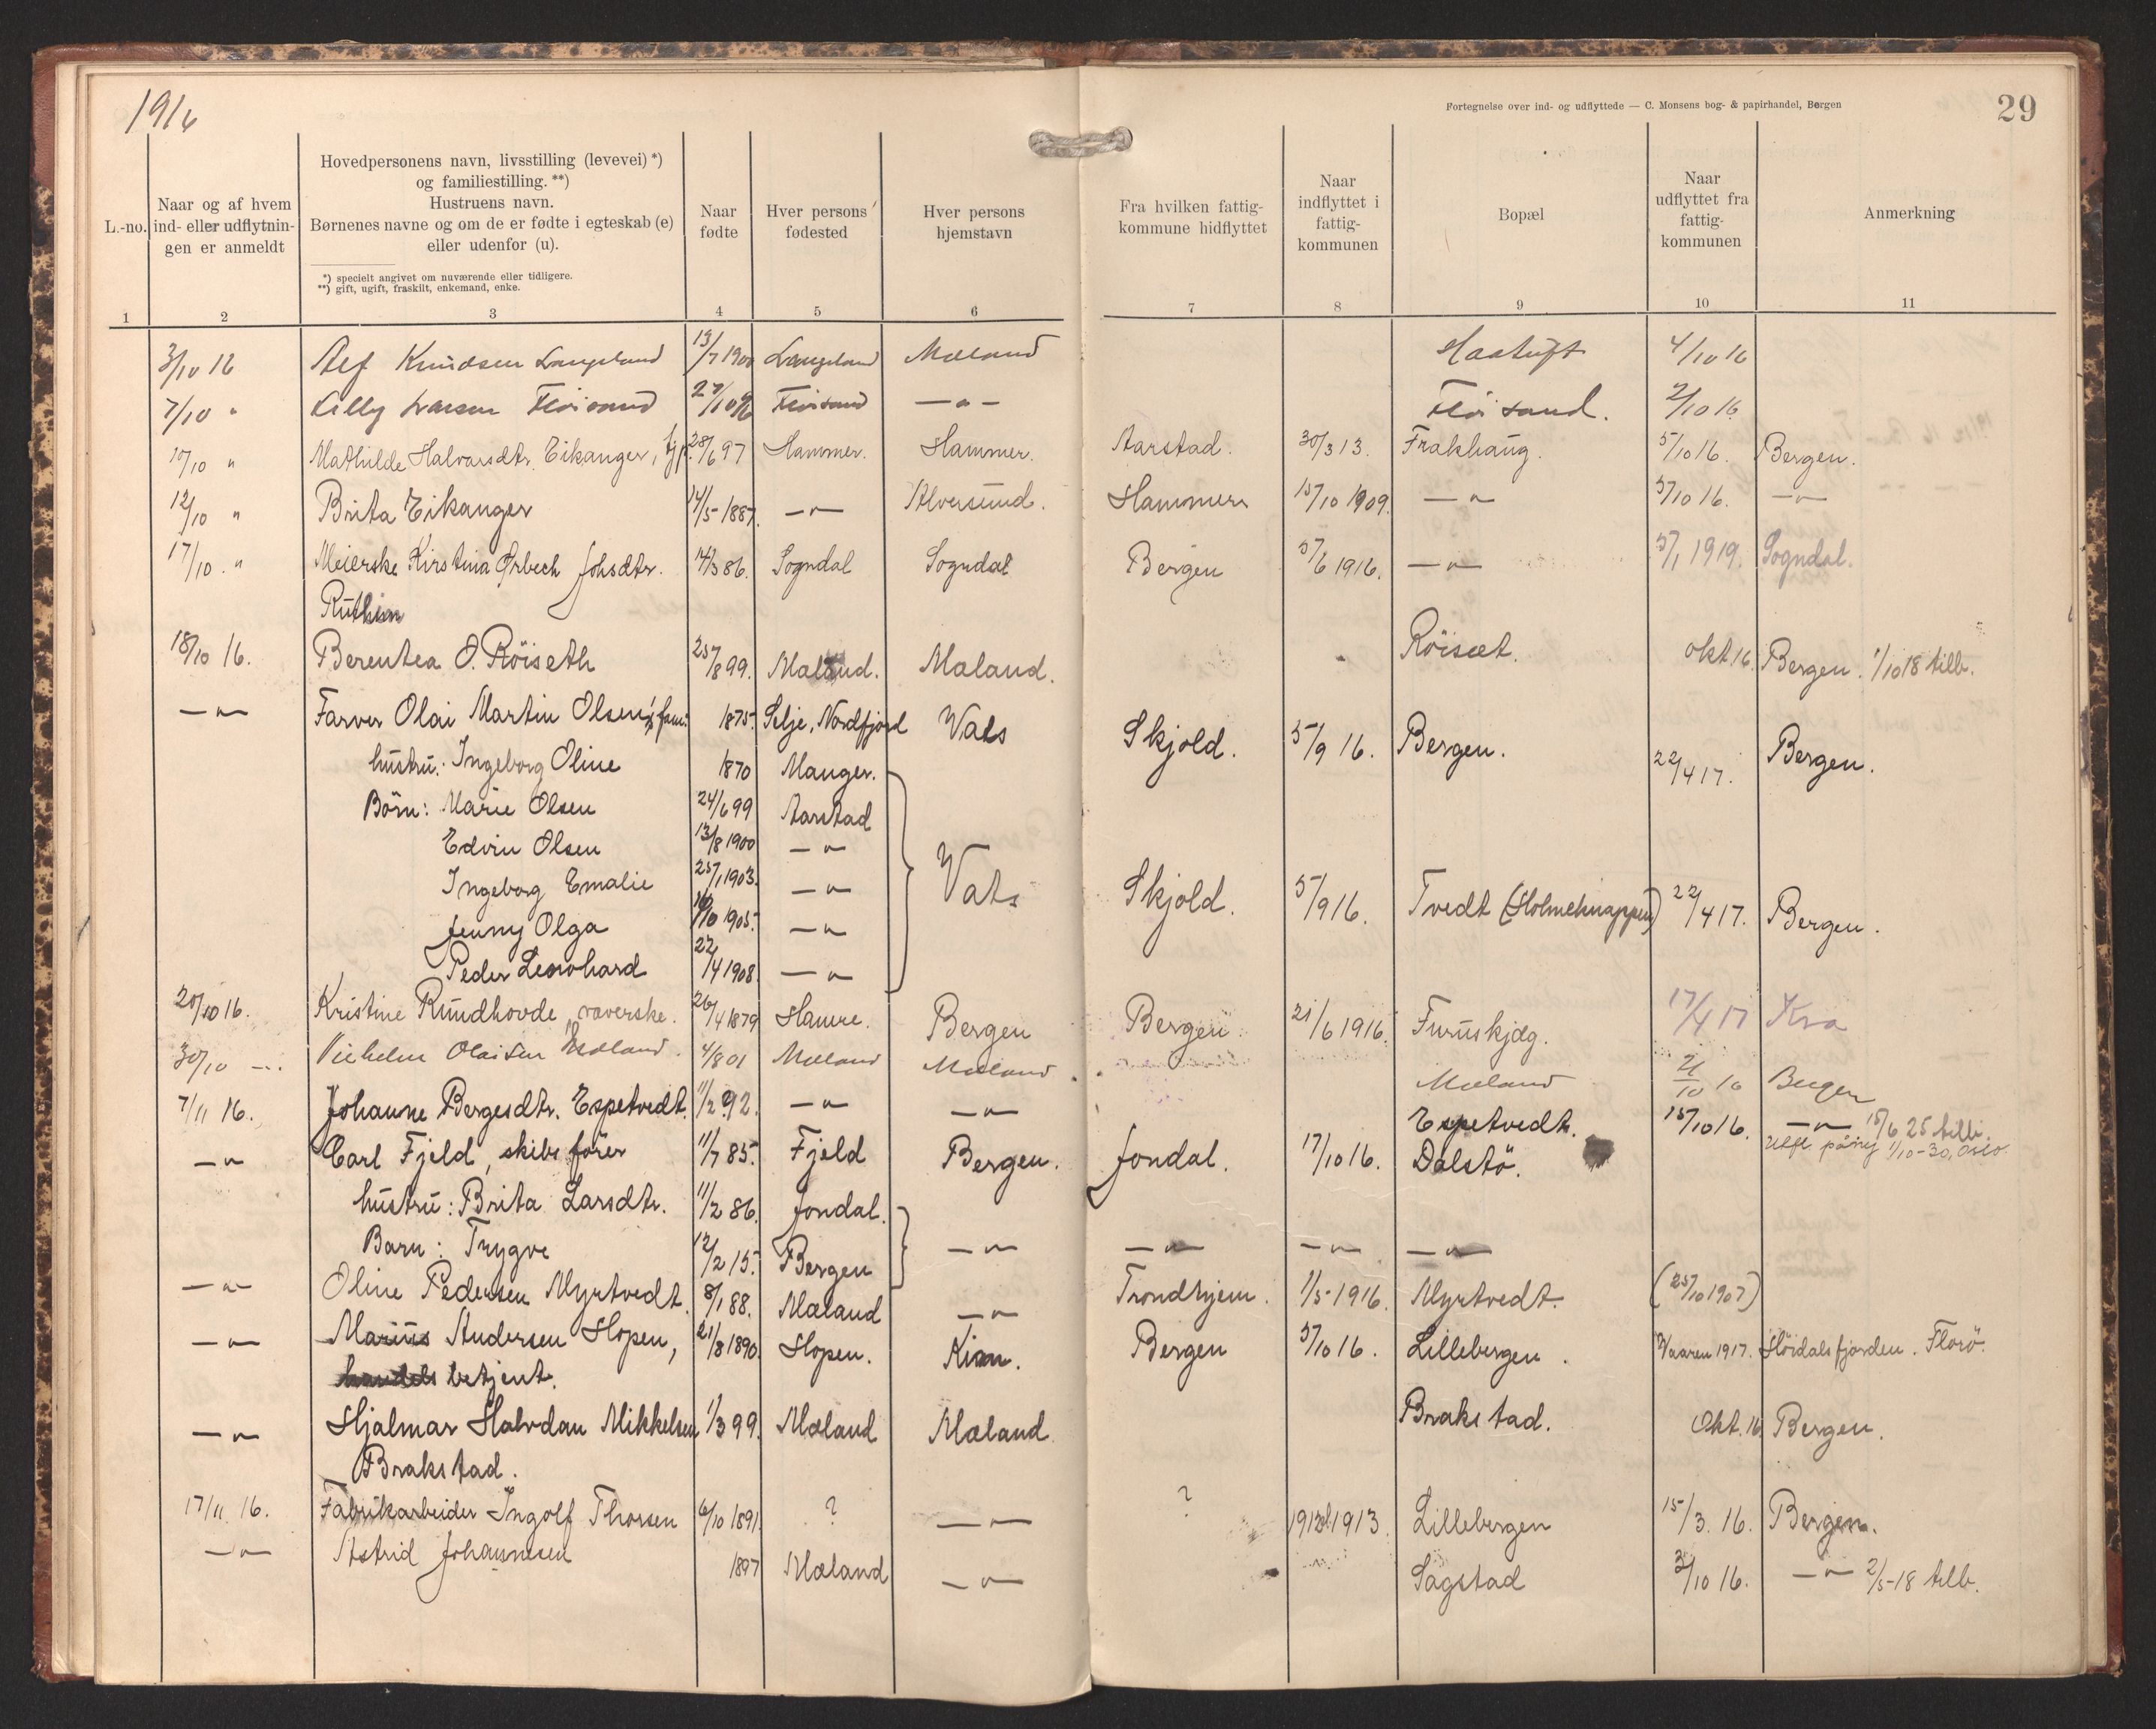 1916
Fortegnelse over ind- og udflyttede — C. Monsens bog- & papirhandel, Bergen
29
L.-no.
Naar og af hvem
ind- eller udflytnin-
gen er anmeldt
Hovedpersonens navn, livsstilling (levevei) *)
og familiestilling. **)
Hustruens navn.
Børnenes navne og om de er fødte i egteskab (e)
eller udenfor (u).
*) specielt angivet om nuværende eller tidligere.
**) gift, ugift, fraskilt, enkemand, enke.
Naar
fødte
Hver persons
fødested
Hver persons
hjemstavn
Fra hvilken fattig-
kommune hidflyttet
Naar
indflyttet i
fattig-
kommunen
Bopæl
Naar
udflyttet fra
fattig-
kommunen
Anmerkning
1 2 3 4 5 6 7 8 9 10 11
3/10 16 Alf Knudsen Langeland 13/7 1900 Langeland Mæland 4/10 16
7/10 " Lilly Larsen Fløisand Fløisand — " — Fløisand. 2/10 16
10/10 " Mathilde Halvarsdtr. Eikanger, tjp. 28/6 97 Hammer. Hammer. Aarstad. 30/3 13. Frekhaug. 5/10 16. Bergen.
12/10 " Brita Eikanger 14/5 1887. — " — Alversund. Hammer 15/10 1909. — " — 5/10 16. — " —
17/10 . " Meierske Kirstina Ørbech Johsdtr. 14/3 86. Sogndal Sogndal Bergen 5/6 1916. — " — 5/1 1919. Sogndal.
18/10 16. Berentea O. Röiseth 25/8 99. Mæland. Mæland. Röiset. Okt 16. Bergen. 1/10 18 tilb.
— " — Farver Olai Martin Olsen's fam: 1875. Selje, Nordfjord Vats Skjold. 5/9 16. Bergen. 22/4 17. Bergen.
hustru: Ingeborg Oline 1870 Manger.
Börn: Marie Olsen 24/6 99 Aarstad
Edvin Olsen 13/8 1900 — " —
Ingeborg Emalie 25/1 1903. — " — Vats Skjold. 5/9 16. Tvedt (Holmeknappen) 22/4 17. Bergen.
Jenny Olga 1905. — " —
Peder Leonhard 22/4 1908. — " —
20/10 16. Kristine Rundhovde, væverske. 26/4 1879 Hamre. Bergen Bergen. 21/6 1916. Furuskjæg. 17/4 17 Kra
30/10 — . Vilhelm Olaisen Mæland. 4/8 01 Mæland Mæland. Mæland 21/10 16 Bergen
7/11 16. Johanne Bergesdtr. Espetvedt. 11/2 92. — " — — " — Espetvedt. 15/10 16. — " — 15/6 25 tilb.
Utfl. påny 1/10-30, Oslo.
— " — Carl Fjeld, skibsförer 11/7 85. Fjeld Bergen. Jondal. 17/10 16. Dalstö.
hustru: Brita Larsdtr. 11/2 86. Jondal.
Barn: Trygve 12/2 15. Bergen — " — — " — — " — — " —
— " — Oline Pedersen Myrtvedt. 8/1 88. Mæland — " — Trondhjem. 1/5-1916. Myrtvedt. (25/10 1907)
— " — Marius Andersen Hopen, 21/8 1890. Hopen. Kinn. Bergen 5/10 16. Lillebergen. Vaaren 1917. Hördalsfjorden. Florö.
handels betjent.
— " — Hjalmar Halvdan Mikkelsen 1/3 99. Mæland Mæland Brakstad. Okt. 16 Bergen.
Brakstad.
17/11. 16. Fabrikarbeider Ingolf Thorsen 6/10 1891. ? — " — ? 1913. Lillebergen 15/3. 16. Bergen.
— " — Astrid Johannesen 1897 Mæland — " — Sagstad 3/10 16. — " — 2/5-18 tilb.